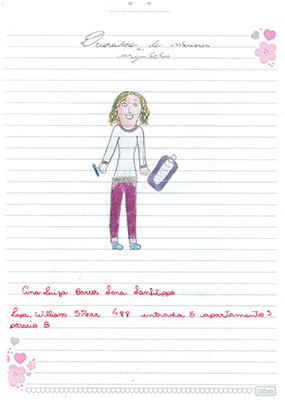 Decoradora de interiores
e
arquiteta
Ana Luiza Barros Sena Sanfilippo
Lapa, Willians SPear 488 entrada 5 apartamento 3
predio B
tilibra